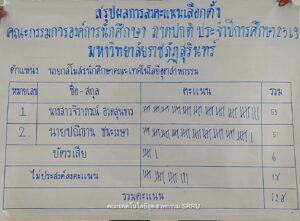 สรุปผลการลงคะแนนเลือกตั้ง
คณะกรรมการองค์การนักศึกษา ภาคปกติ ประจำปีการศึกษา 2563
มหาวิทยาลัยราชภัฏสุรินทร์
ตำแหน่ง นายกสโมสรนักศึกษาคณะเทคโนโลยีอุตสาหกรรม
หมายเลข ชื่อ-สกุล คะแนน รวม
1.
2. นายปณิธาน
บัตรเสีย 6
ไม่ประสงค์ลงคะแนน
รวมคะแนน
คณะเทคโนโลยีอุตสาหกรรม SRRU